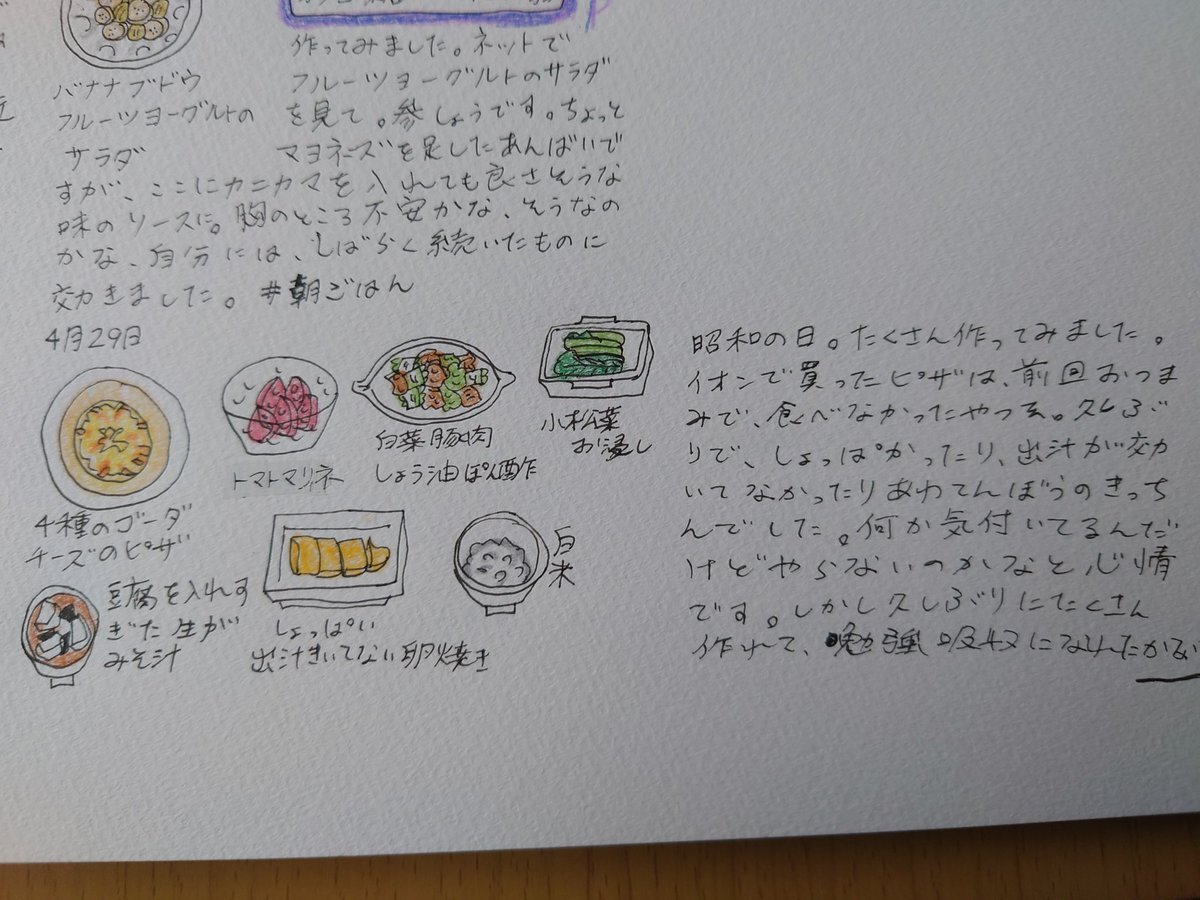 作ってみました。ネットで
バナナブドウ
フルーツヨーグルトの
サラダ
フルーツヨーグルトのサラダ
を見て。参しょうです。ちょっと
マヨネーズを足したあんばいで
すが、ここにカニカマを入れても良さそうな
味のソースに。胸のところ不安かな、そうなの
かな、自分には、しばらく続いたものに
効きました。#朝ごはん
4月29日
4種のゴーダ
チーズのピザ
トマトマリネ
白菜豚肉
しょう油ぽん酢
小松菜
お浸し
豆腐を入れす
ぎた生が
みそ汁
しょっぱい
出汁きいてない卵焼き
白米
昭和の日。たくさん作ってみました。
イオンで買ったピザは、前回おつま
みで、食べなかったやつを。久しぶ
りで、しょっぱかったり、出汁が効
いてなかったりあわてんぼうのきっち
んでした。何か気付いてるんだ
けどやらないのかなと心情
です。しかし久しぶりにたくさん
作れて、勉強吸収になれたかな